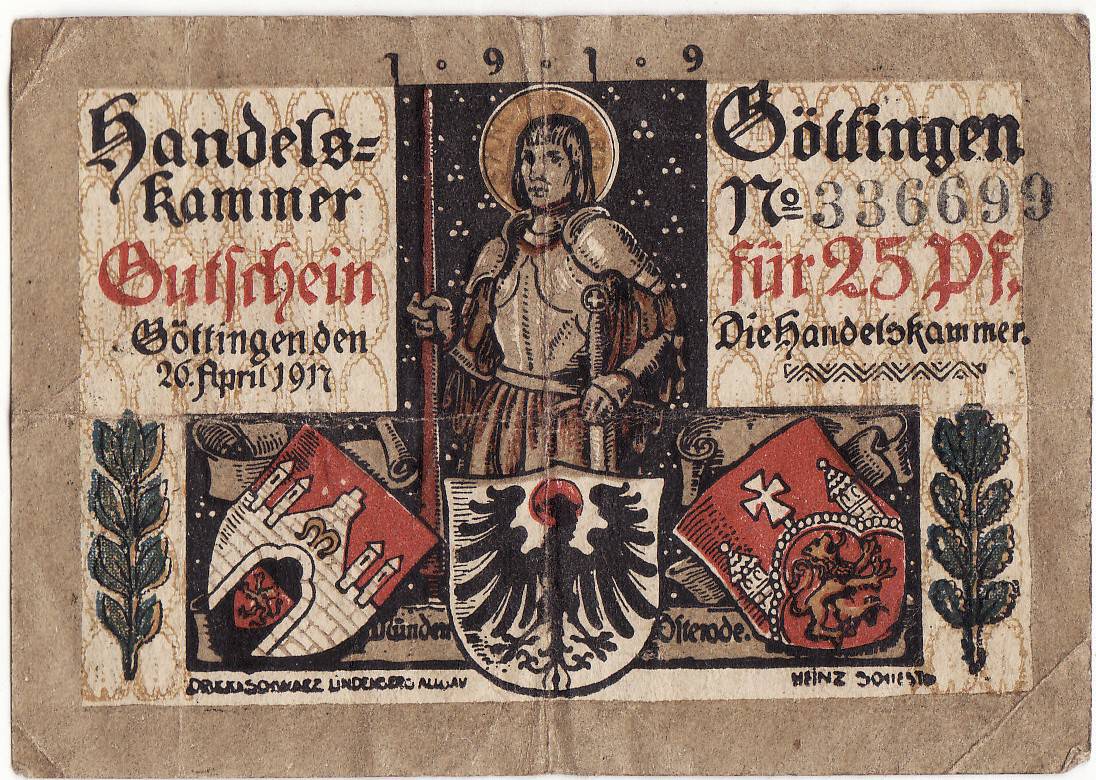 1·9·1·9
Handels=
kammer
Gutschein
Göttingen, den
26. April 1917
Göttingen
No 336699
für 25 Pf.
Die Handelskammer.
Münden
Osterode.
LINDENBERG ALLGÄU
HEINZ SCHIESTL